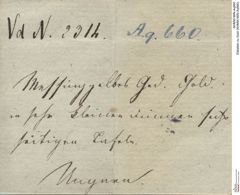 Vd N. 2314. Ag. 660.
Messinggelbes Ged. Gold.
in sehr kleinen dünnen sechs
seitigen Tafeln.
Ungarn.